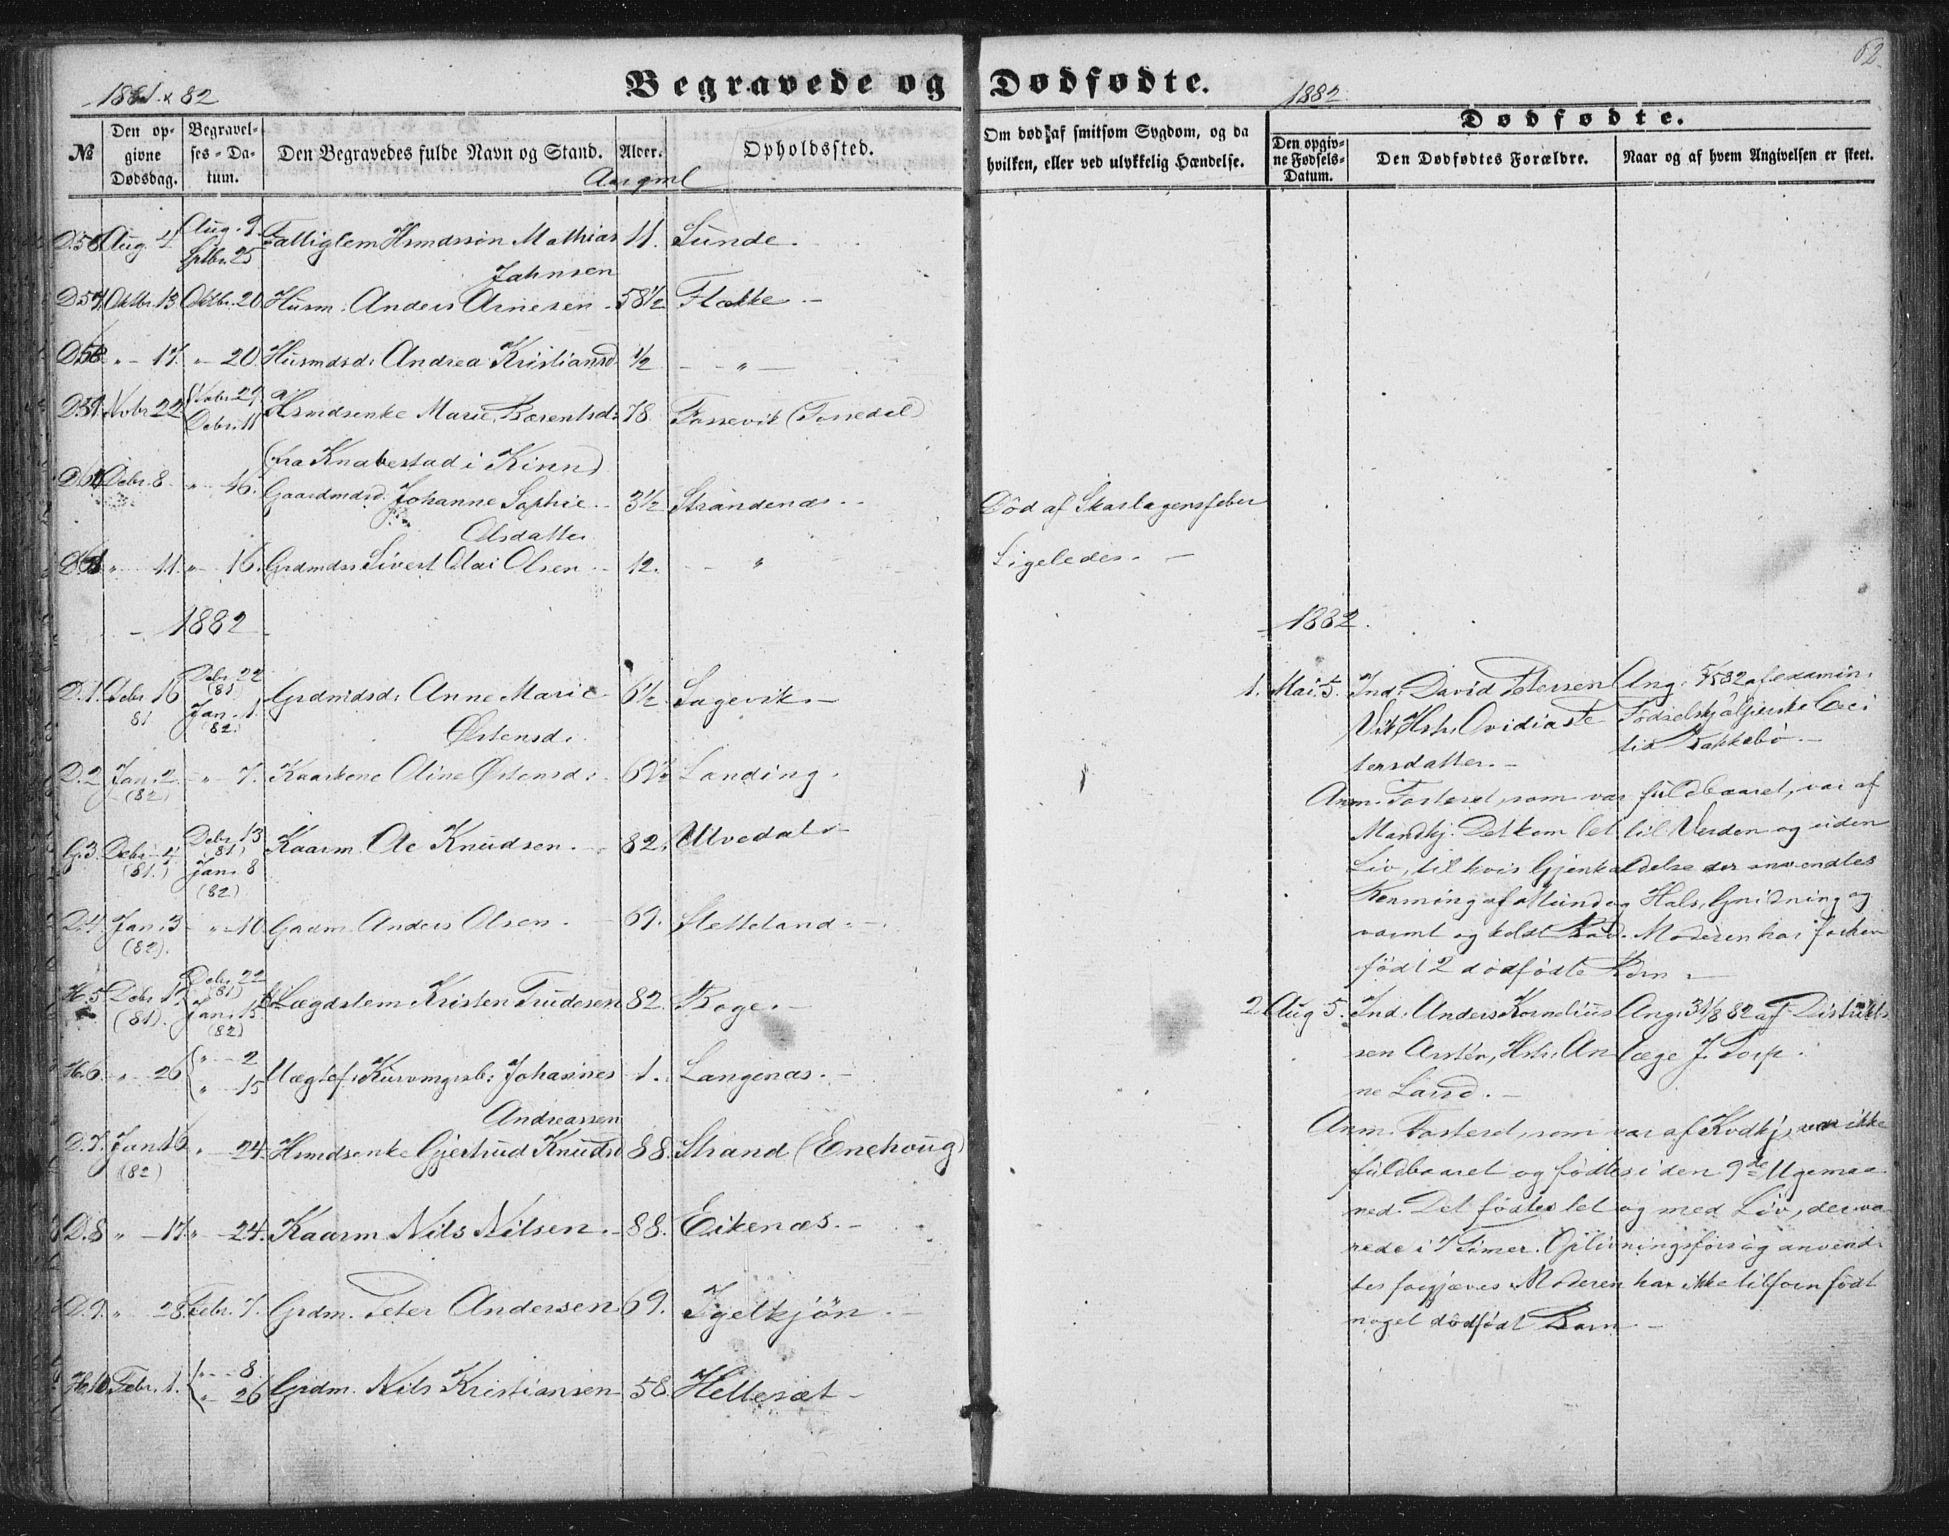 62
1881 & 82
Begravede og Dødfødte.
1882
Dødfødte.
№
Den opgivne Dødsdag.
Begravelses-Datum.
Den Begravedes fulde Navn og Stand.
Alder.
Opholdssted.
Om død af smitsom Sygdom, og da hvilken, eller ved ulykkelig Hændelse.
Den opgivne Fødsels-Datum.
Den Dødfødtes Forældre.
Naar og af hvem Angivelsen er skeet.
D.56 Aug. 4 Aug. 9 Fattiglem Hsmdssön Mathias 11. Sunde.
Sptbr. 25 Jahnsen
D.57 Oktbr. 13 Oktbr. 20 Husm. Anders Arnesen 58 1/2 Flække
D.58 " 17. " 20 Husmdsd: Andrea Kristiansd. 1/2 "
D.59. Nvbr 22 Nvbr. 29 Hsmdsenke Marie Bærentsd: 78. Fossevik
Debr. 11
(fra Knabestad i Kinn)
D.60 Debr. 8 " 16. Gaardmdsd. Johanne Sophie 3 1/2 Strandenæs Död af Skarlagensfeber
Olsdatter
D.61 " 11. " 16. Grdmdss Sivert Olai Olsen 12. " Ligeledes.
1882
1882.
D.1. Debr 16 81 Debr. 22 (81) Grdmdsd: Anne Marie 6 1/2 Sagevik
Jan. 1. (82.) Østensd:
D.2 Jan. 2 (82) " 7. Kaarkone Oline Østensd: Landing.
G.3 Debr. 4 (81.) Debr. 13 (81) Kaarm. Ole Knudsen. 82. Utvedal
Jan. 8 (82)
D.4. Jan. 3 (82). " 10 Gaardm. Anders Olsen. 69. Sletteland.
H.5 Debr. (81). Debr. 22 (81) Lægdslem Kristen Trudesen 82. Boge.
Jan. 15 (82)
H.6 " 26 " 2 Johannes 1. Langenæs.
" 15 Andreassen
D.7. Jan. 16 (82) " 24. Hsmdsenke Gjertrud Knudsd 88. Strand (Enehoug)
D.8 " 17. " 24. Kaarm Nils Nilsen. 88. Eikenæs.
D.9. " 28 Febr. 7. Grdm. Peter Andersen 69. Igelkjön
H.10 Febr. 1. " 8. Grdm. Nils Kristiansen 58. Hellesæt
" 26
1. Mai 5. Ind: David Petersen Ang: 5/5 82 af examin.
Vik, Hstr: Ovidia Pe Födselshjælperske Ceci
tersdatter. lia Bakkebö.
Anm. Fosteret, som var fuldbaaret, var af
Mandkj. Det kom let til Verden og uden
Liv, til hvis Gjenkaldelse der anvendtes
Rensning af Mund og Hals, Gnidning og
varmt og koldt Bad. Moderen har forhen
födt 2 dödfödte Börn.
2 Aug 5. Ind: Anders Kornelius Ang: 31/8 82 af Distrikts
sen Arstën, Hstr: An læge J. Torp.
ne Land.
Anm. Fosteret, som var af Kvdkj, var ikke
fuldbaaret og födtes i den 9de Ugemaa
ned. Det födtes let og med Liv, der va
rede i 7 Timer. Oplivningsforsög anvend
tes forgjæves. Moderen har ikke tilforn födt
noget dödfödt Barn.